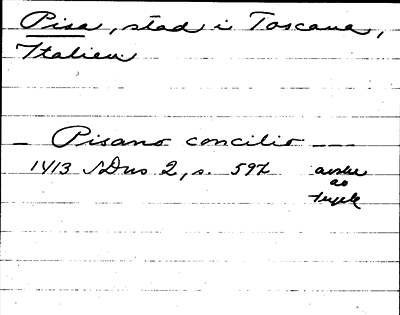 Pisa, stad i Toscana,
Italien
— Pisano concilio —
1413 SDns 2, s. 597 avskr
av
tryck